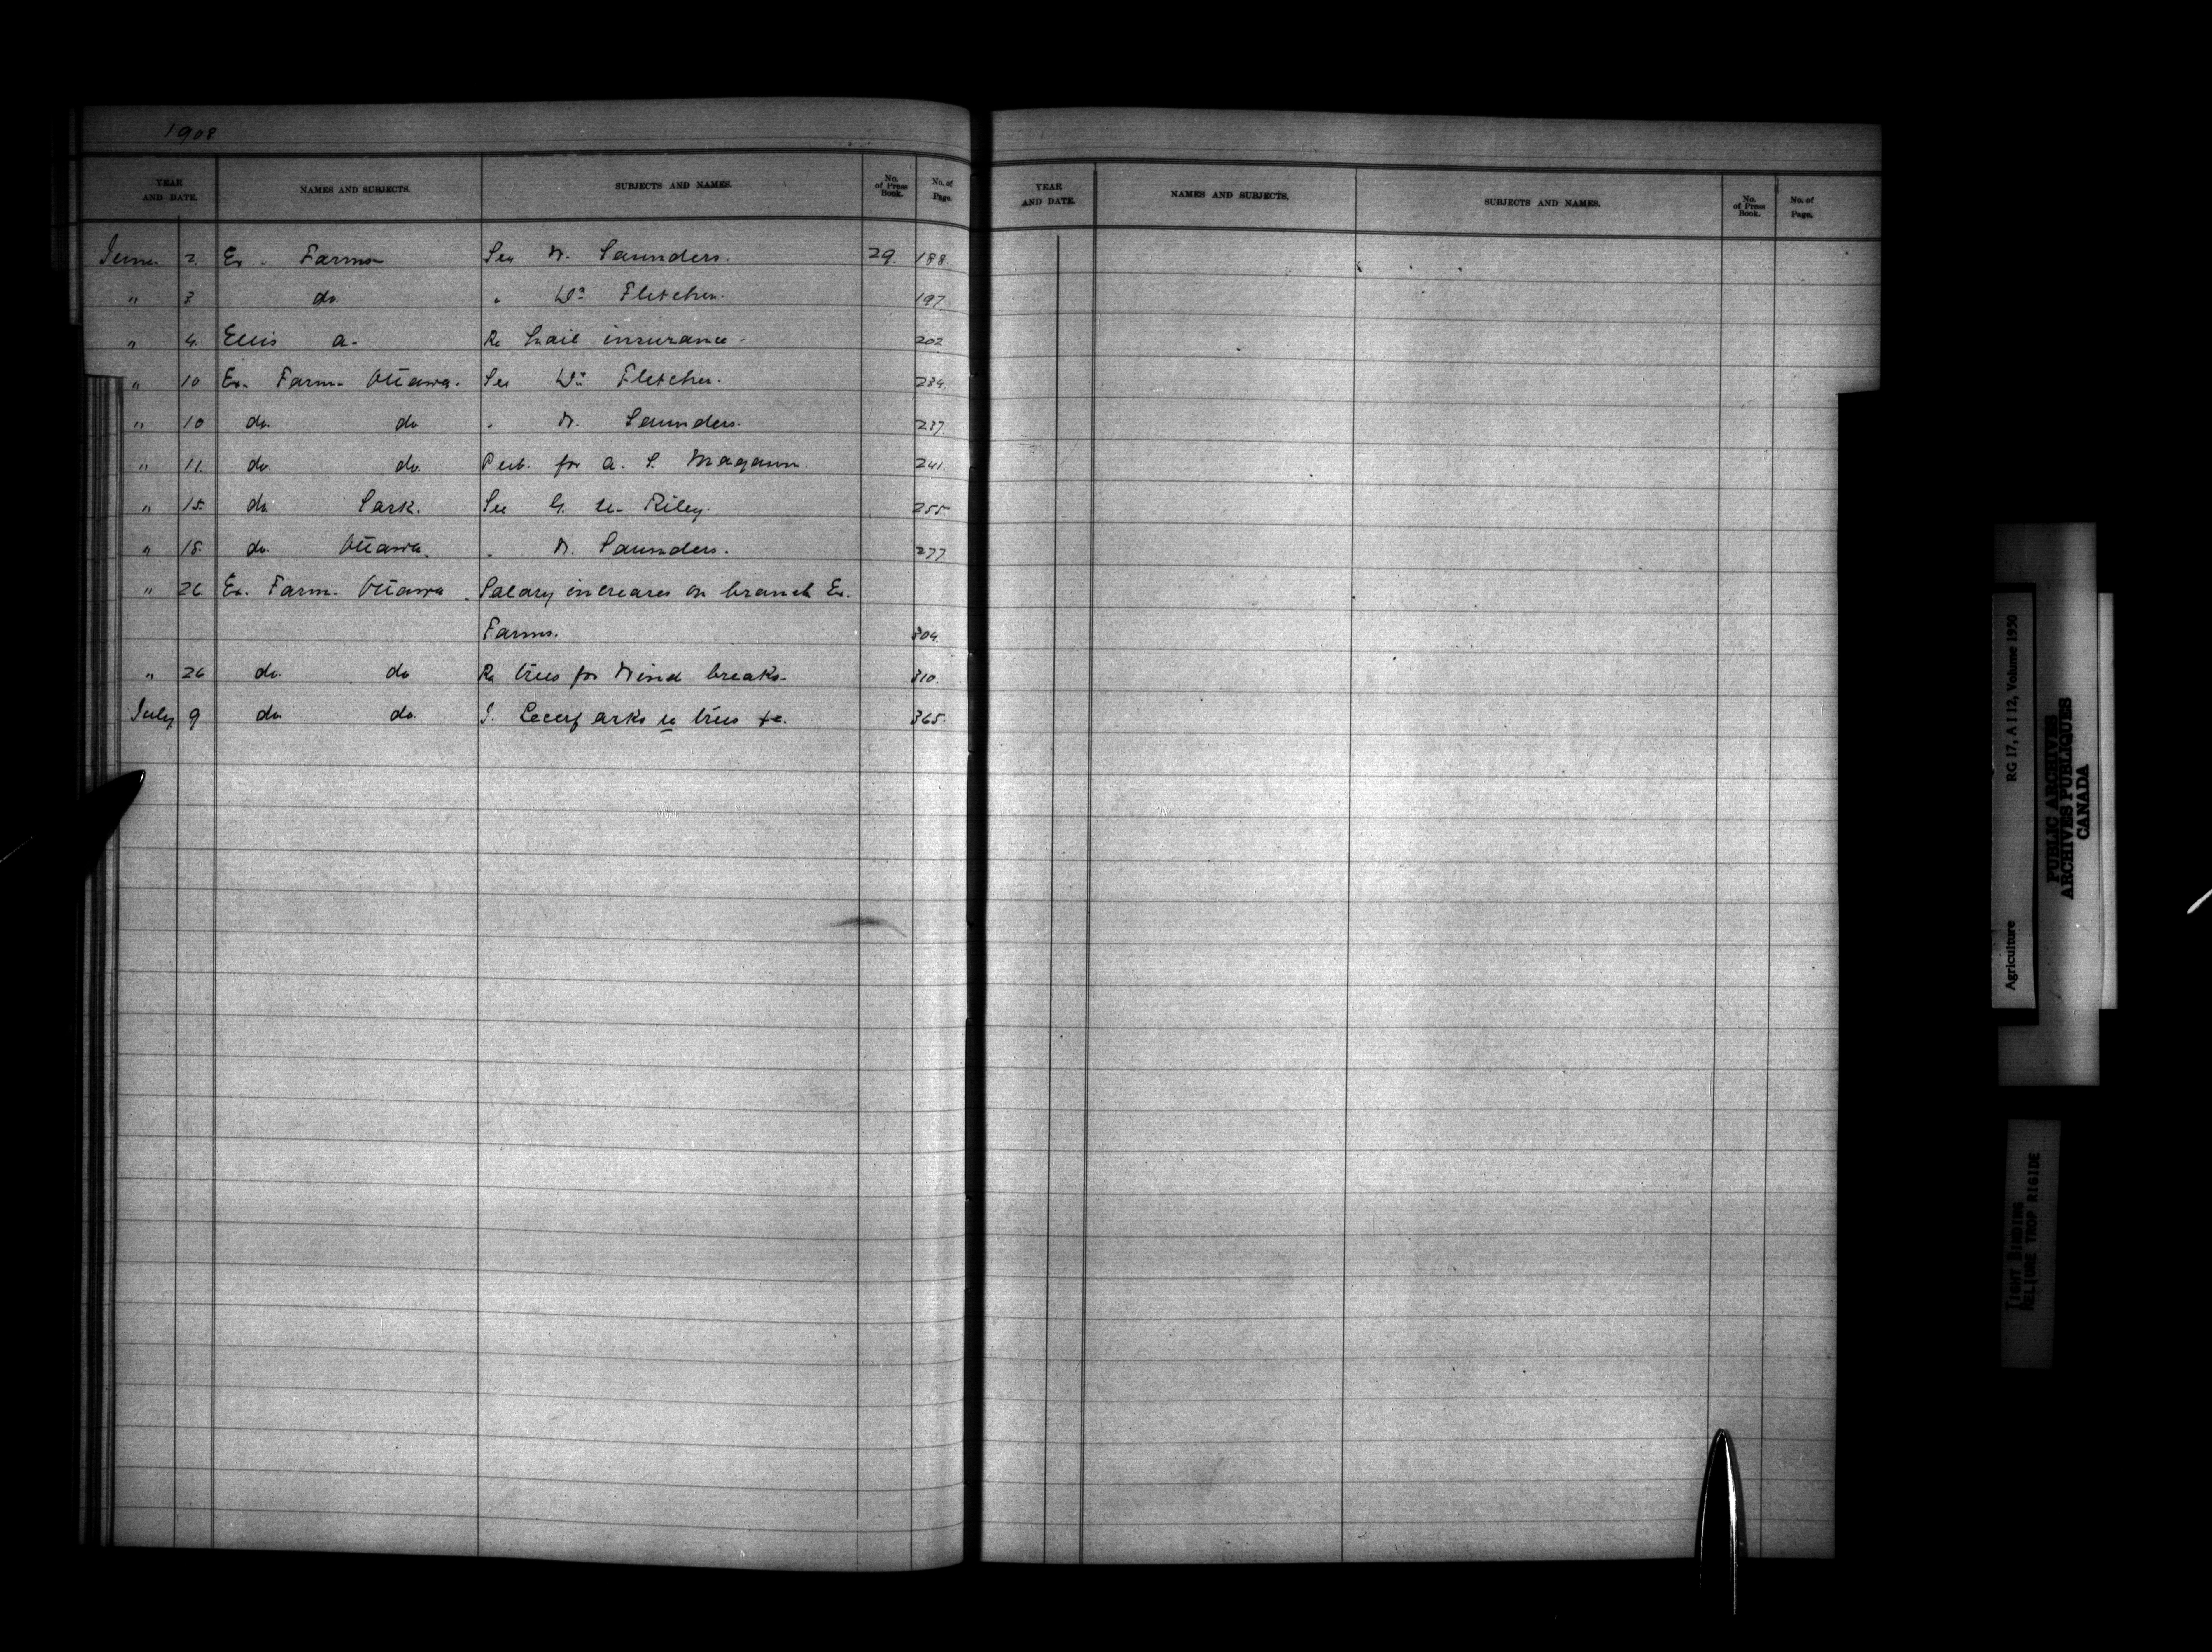 1908
YEAR AND DATE. NAMES AND SUBJECTS. SUBJECTS AND NAMES. No. of Press Book. No. of Page.
June 2. Ex. Farms See W. Saunders. 29. 188.
" 3 do. " Dr. Fletcher. 197.
" 4. Ellis A. Re hail insurance. 202
" 10 Ex. Farm. Ottawa. See Dr. Fletcher. 234.
" 10 do. do " W. Saunders. 237.
" 11. do. do. Pub. for A. P. Magann. 241.
" 15. do. Sask. See G. U. Riley. 255.
" 18. do. Ottawa. " W. Saunders. 277
" 26. Ex. Farm. Ottawa. Salary increases on branch Ex.
Farms. 304.
" 26 do. do Re trees for Wind breaks. 310.
July 9 do. do. asks re trees &c. 365.
YEAR AND DATE. NAMES AND SUBJECTS. SUBJECTS AND NAMES. No. of Press Book. No. of Page.
Agriculture RG 17, A I 12, Volume 1950
PUBLIC ARCHIVES
ARCHIVES PUBLIQUES
CANADA
TIGHT BINDING
RELIURE TROP RIGIDE